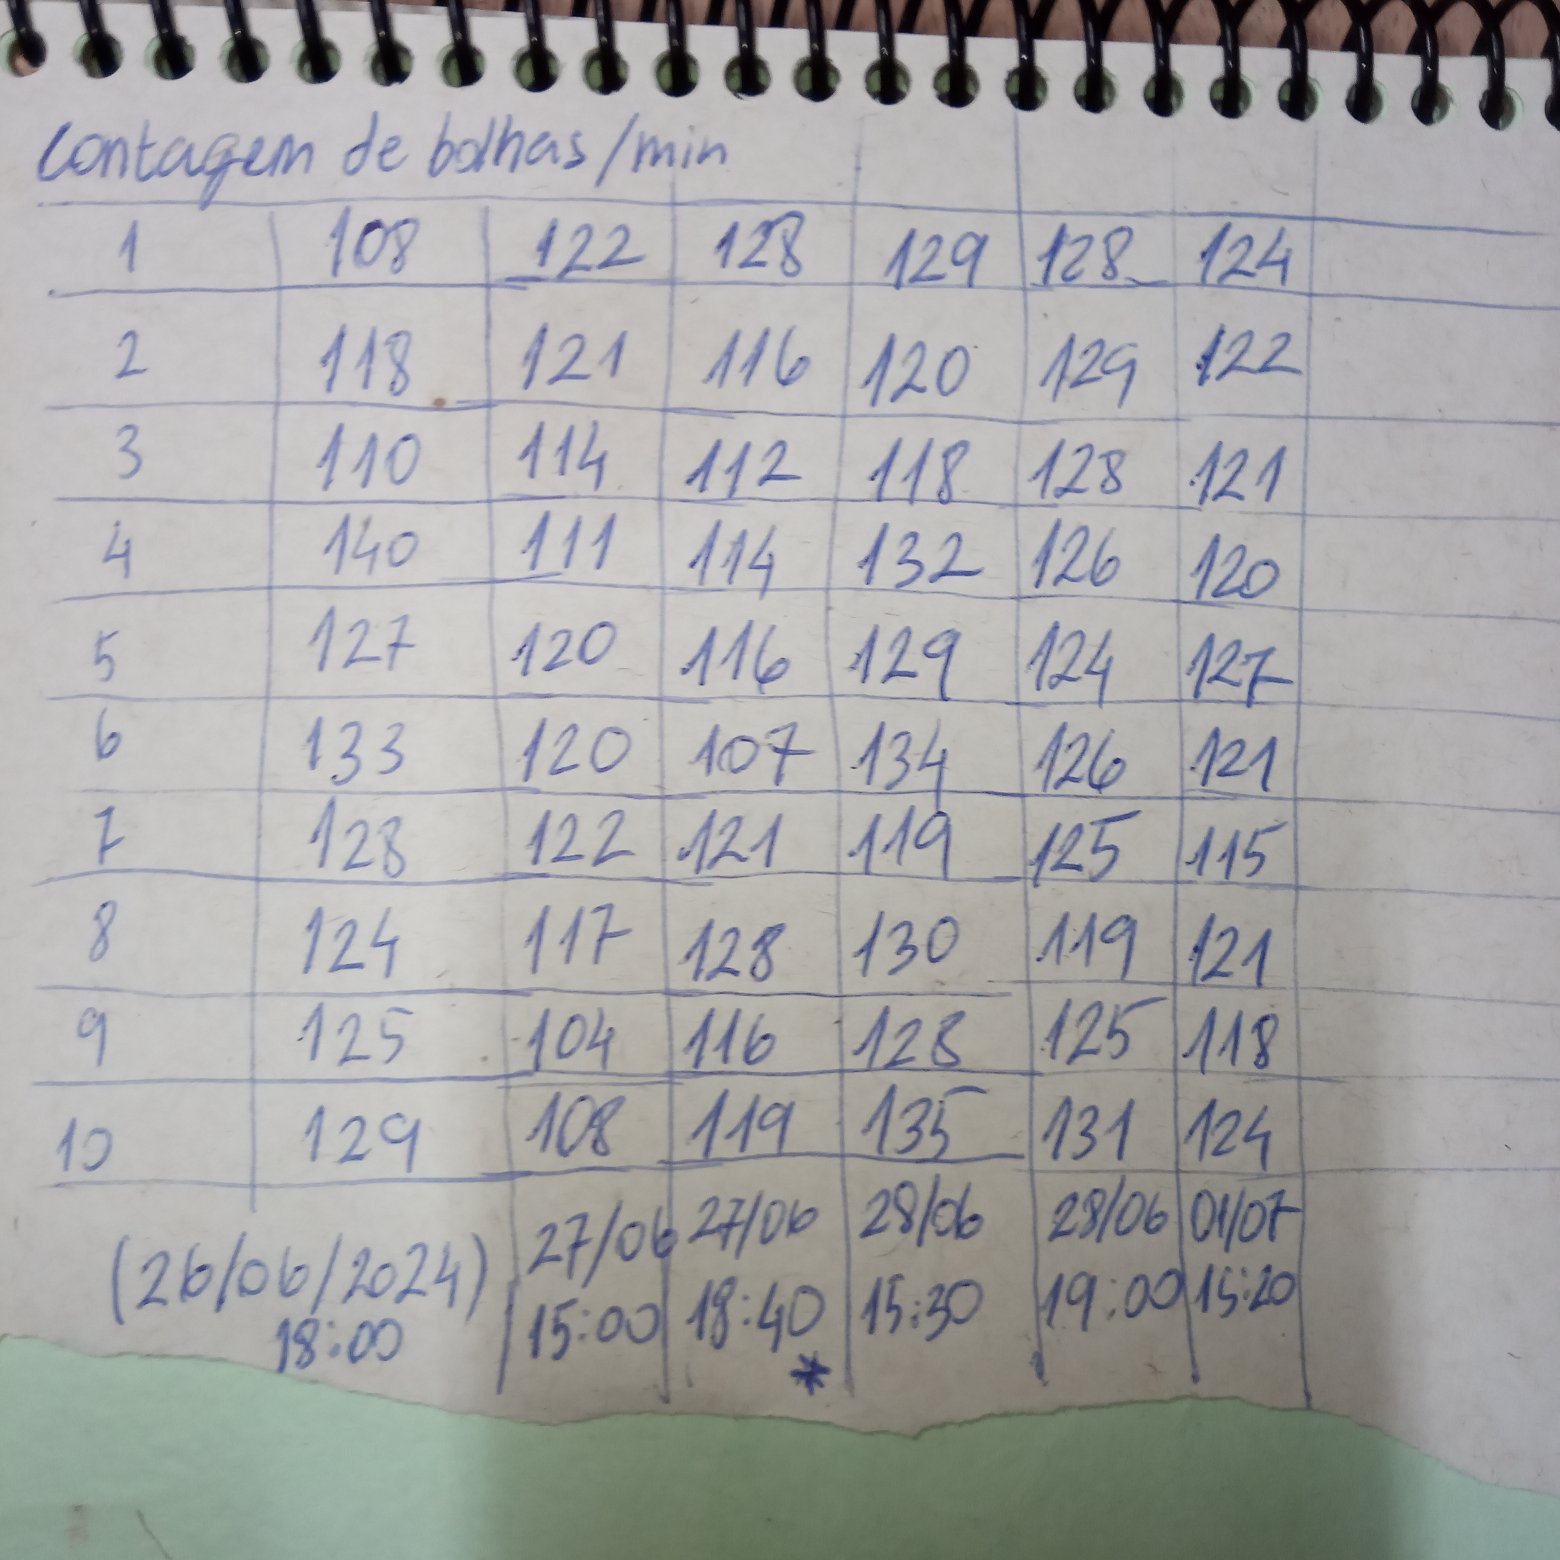 Contagem de bolhas/min
1 108 122 128 129 128 124
2 118 121 116 120 129 122
3 110 114 112 118 128 121
4 140 111 114 132 126 120
5 127 120 116 129 124 127
6 133 120 107 134 126 121
7 128 122 121 119 125 115
8 124 117 128 130 119 121
9 125 104 116 128 125 118
10 129 108 119 135 131 124
(26/06/2024) 27/06 27/06 28/06 28/06 01/07
18:00 15:00 18:40 15:30 19:00 15:20
*